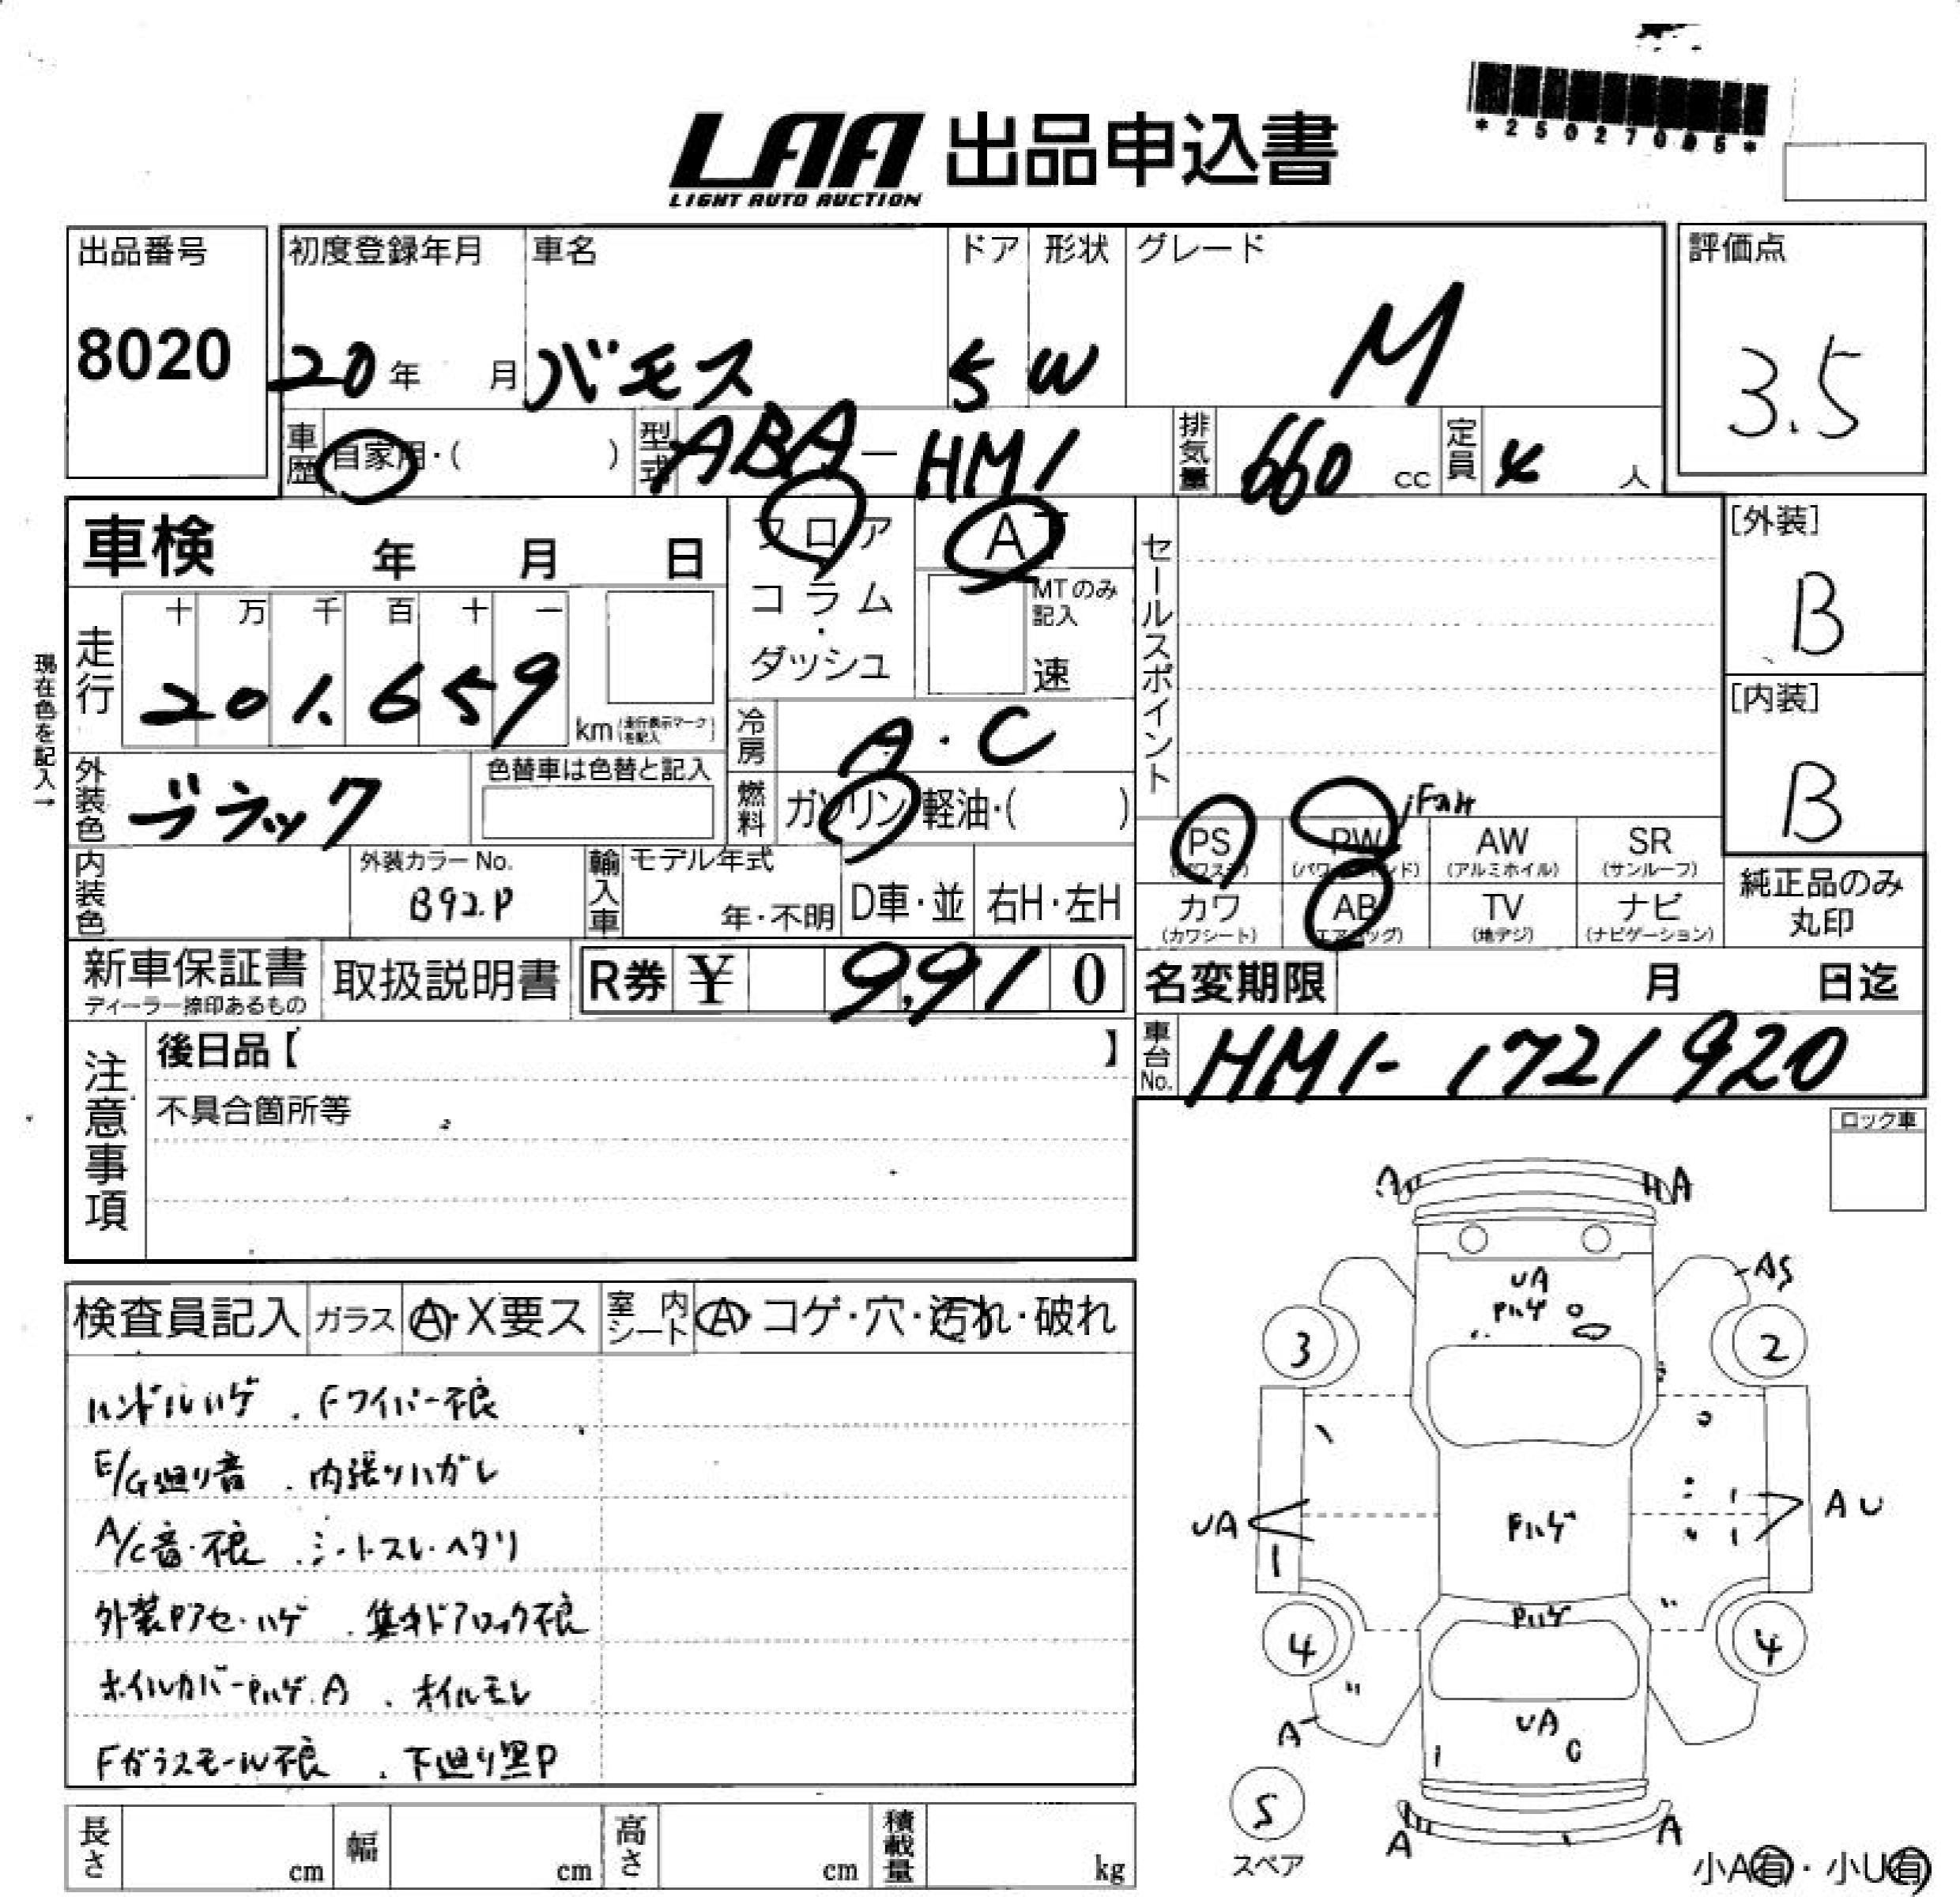 *25027005*
LAA 出品申込書
LIGHT AUTO AUCTION
出品番号 初度登録年月 車名 ドア 形状 グレード 評価点
8020 20年 月 バモス 5 W M 3.5
車歴 自家用・( ) 型式 ABA－HM1 排気量 660 cc 定員 4 人
車検 年 月 日 フロア AT セールスポイント [外装]
コラム・ダッシュ MTのみ記入 速 B
現在色を記入→
走行 十 万 千 百 十 一
201.659 km (走行表示マークを記入) [内装]
冷房 A・C B
外装色 ブラック 色替車は色替と記入 燃料 ガソリン・軽油・( )
PS (パワステ) PW (パワーウインド) AW (アルミホイル) SR (サンルーフ)
内装色 外装カラーNo. B92P 輸入車 モデル年式 年・不明 D車・並 右H・左H
カワ (カワシート) AB (エアバッグ) TV (地デジ) ナビ (ナビゲーション) 純正品のみ丸印
新車保証書 ディーラー捺印あるもの 取扱説明書 R券 ¥ 9,910 名変期限 月 日迄
注意事項 後日品【 】 車台No. HM1-1721920
不具合箇所等
ロック車
検査員記入 ガラス A・X要ス 室内シート A・コゲ・穴・汚れ・破れ
ハンドルハゲ . Fワイパー不良
E/G廻り音 . 内張りハガレ
A/C音・不良 . シートスレ・ヘタリ
外装Pアセ・ハゲ . 集中ドアロック不良
ホイルカバーPハゲ.A . オイルモレ
Fガラスモール不良 . 下廻り黒P
長さ cm 幅 cm 高さ cm 積載量 kg
A A
UA AS
Pハゲ
3 2
UA Pハゲ AU
Pハゲ
4 4
A UA
C
5
スペア A A
小A有・小U有